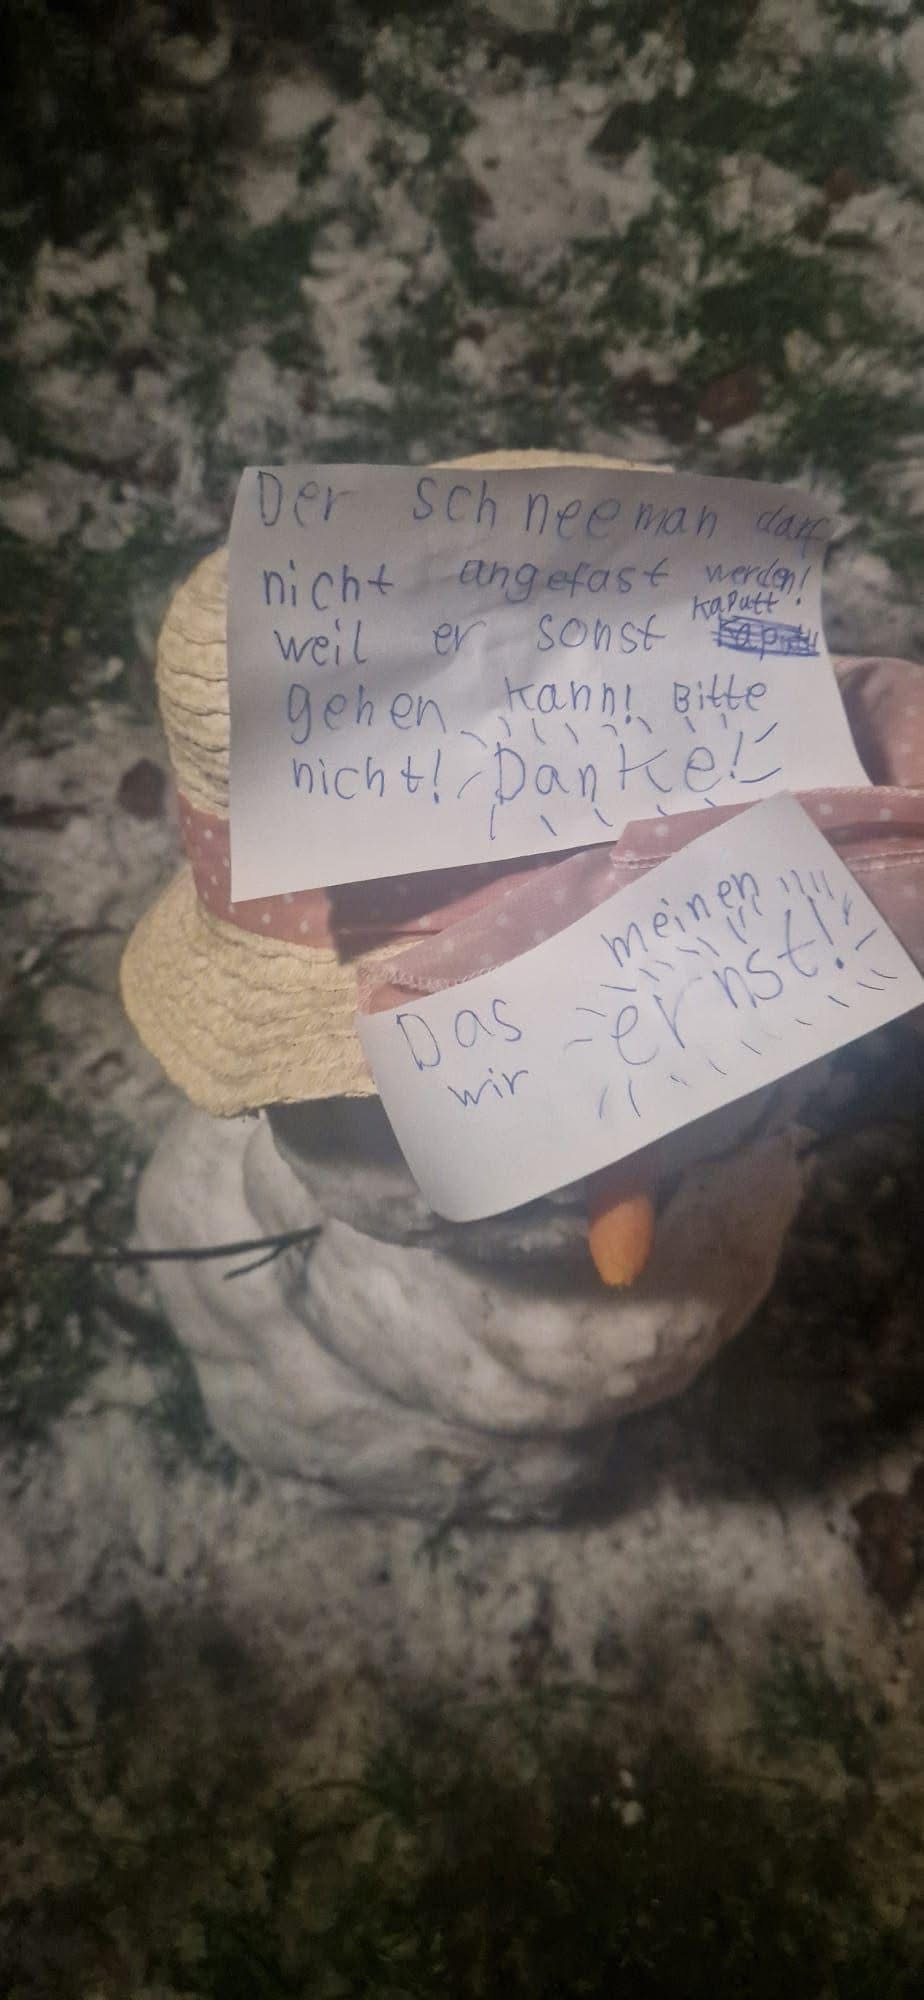 Der Schneeman darf
nicht angefast werden!
weil er sonst kaputt!
gehen kann! Bitte
nicht! Danke!
Das meinen
wir ernst!